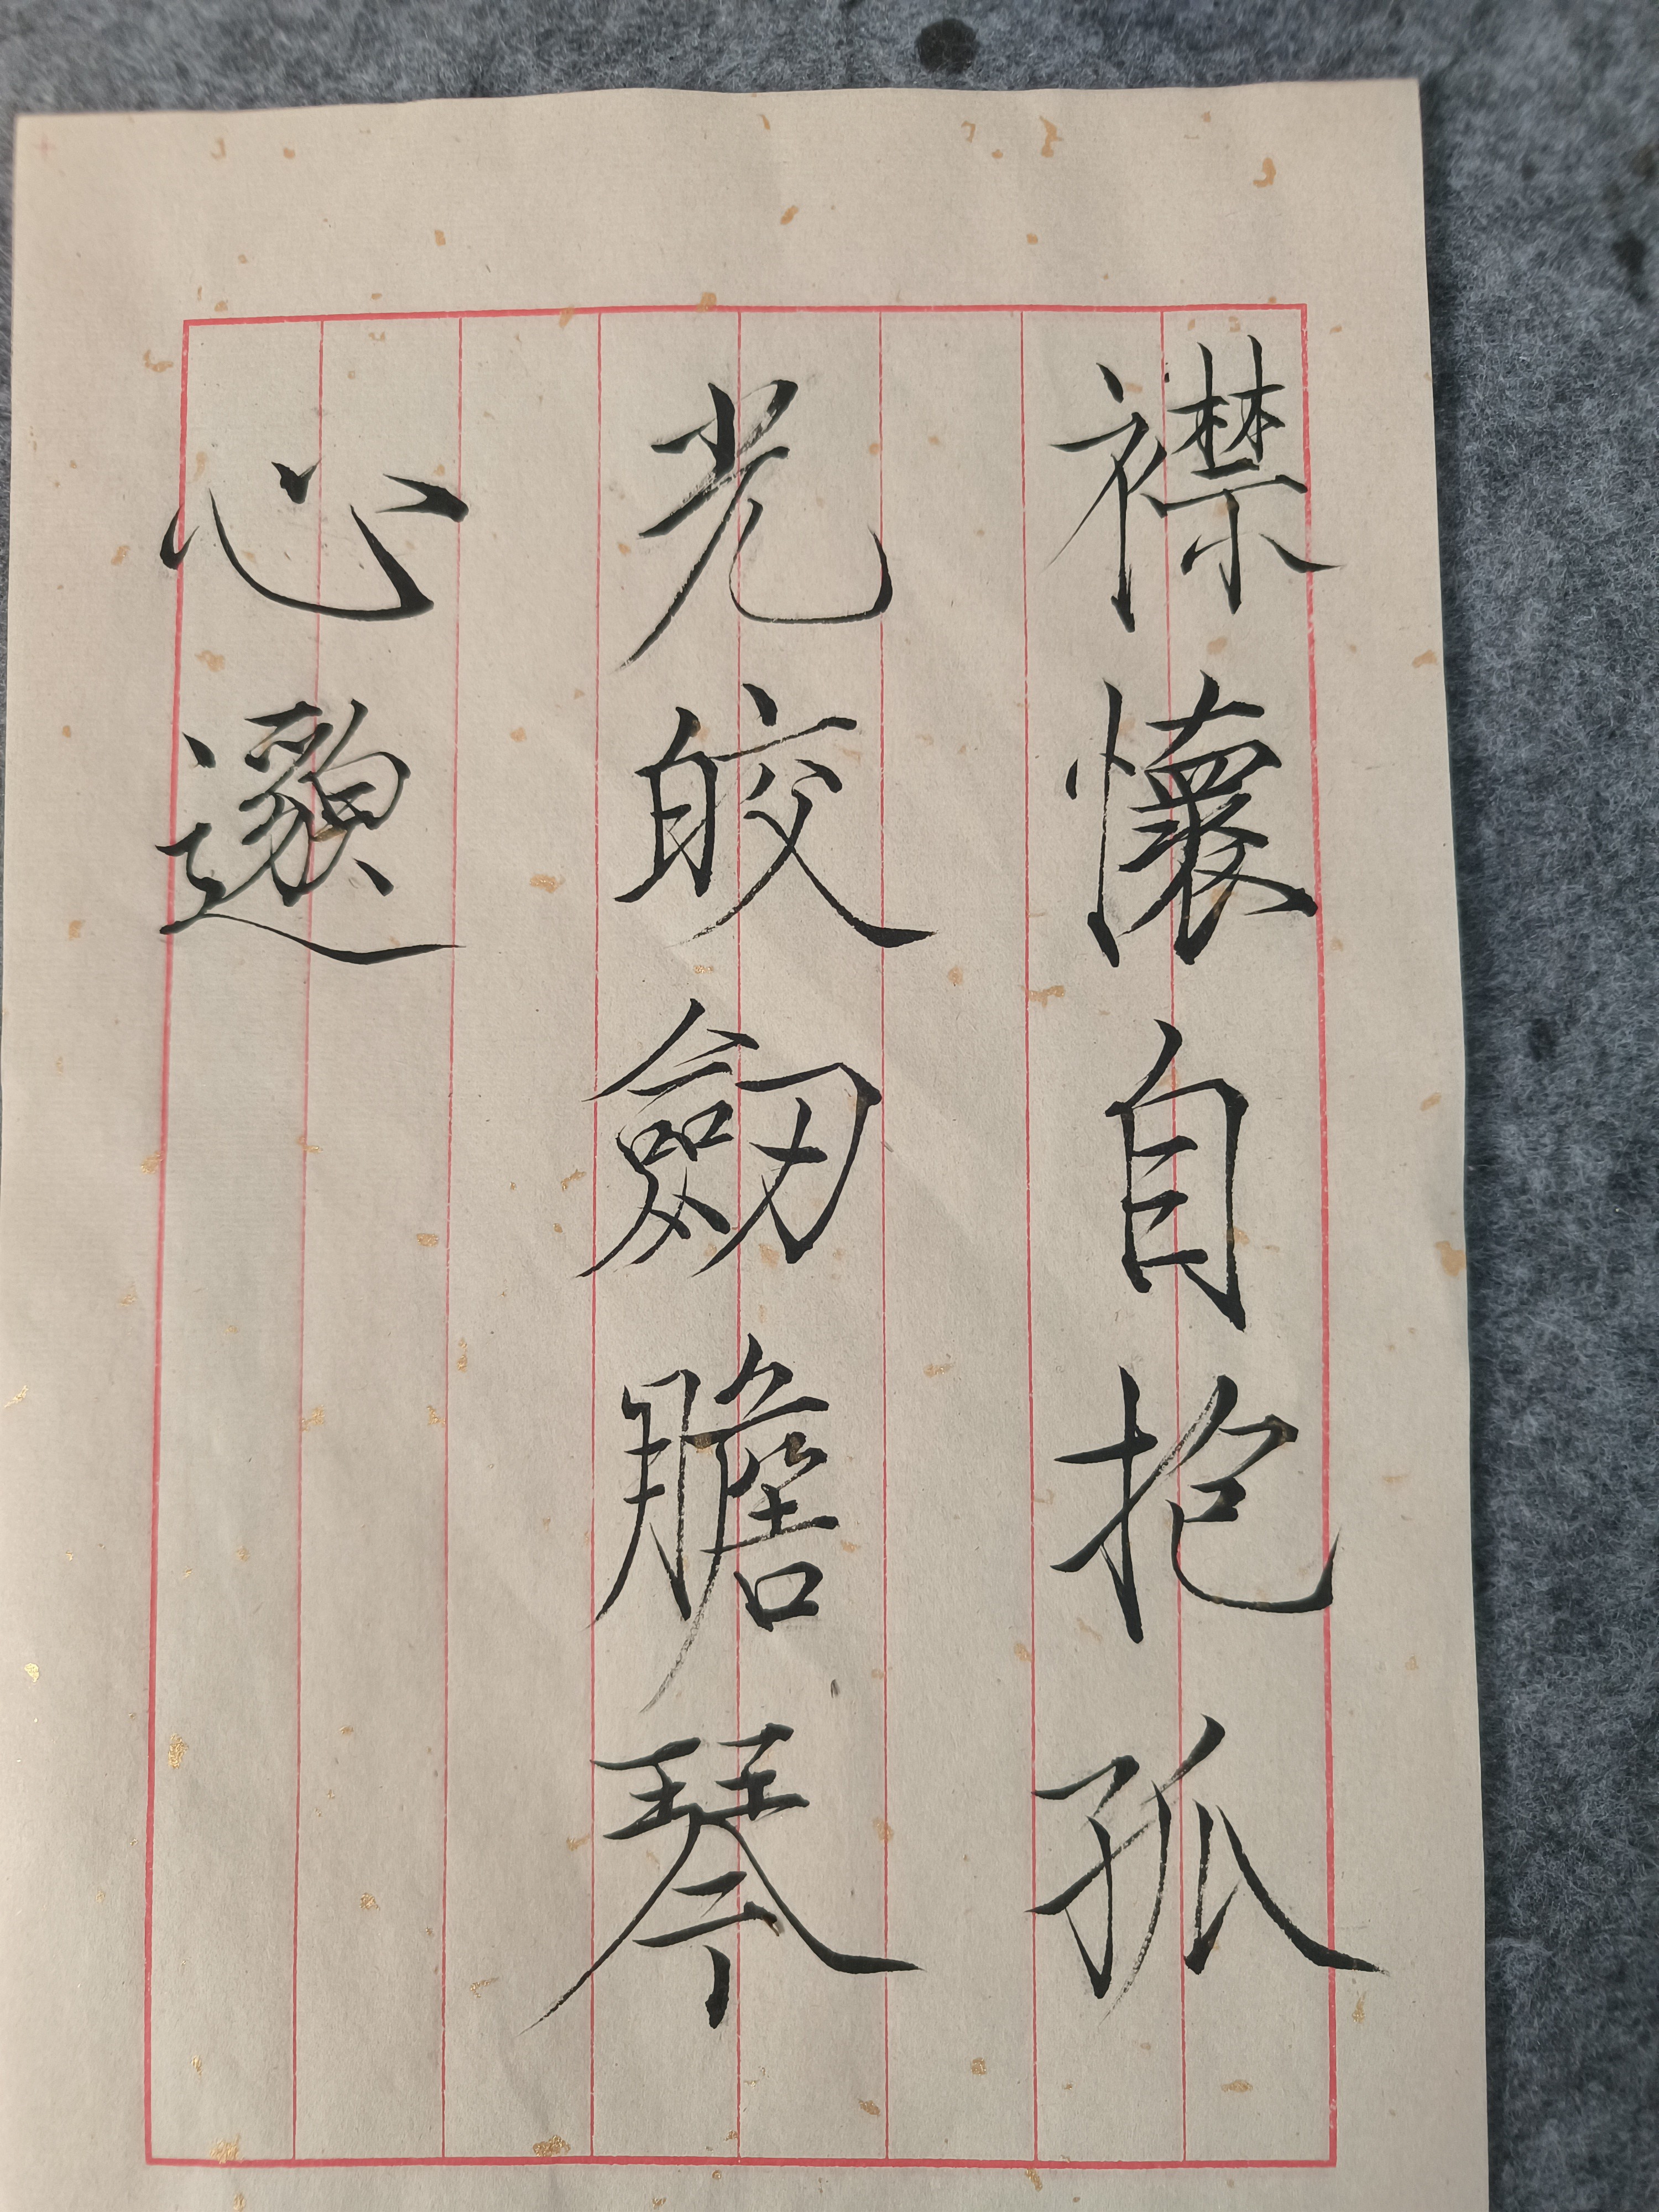 襟懷自抱孤
光皎劒膽琴
心邈